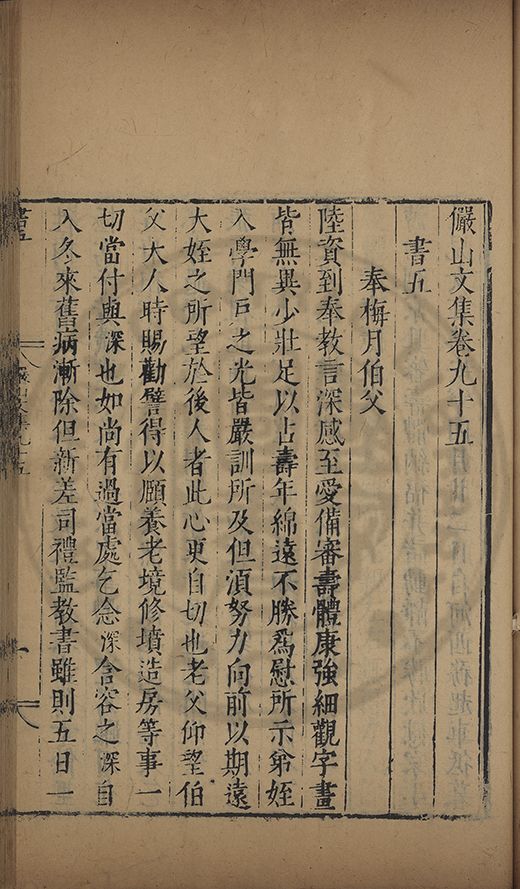 儼山文集卷九十五
書五
奉梅月伯父
陸資到奉教言深感至愛備審壽體康強細觀字畫
皆無異少壯足以占壽年綿遠不勝爲慰所示弟姪
入學門戶之光皆嚴訓所及但須努力向前以期遠
大姪之所望於後人者此心更自切也老父仰望伯
父大人時賜勸譬得以頤養老境修墳造房等事一
切當付與深也如尚有過當處乞念深含容之深自
入冬來舊病漸除但新差司禮監教書雖則五日一